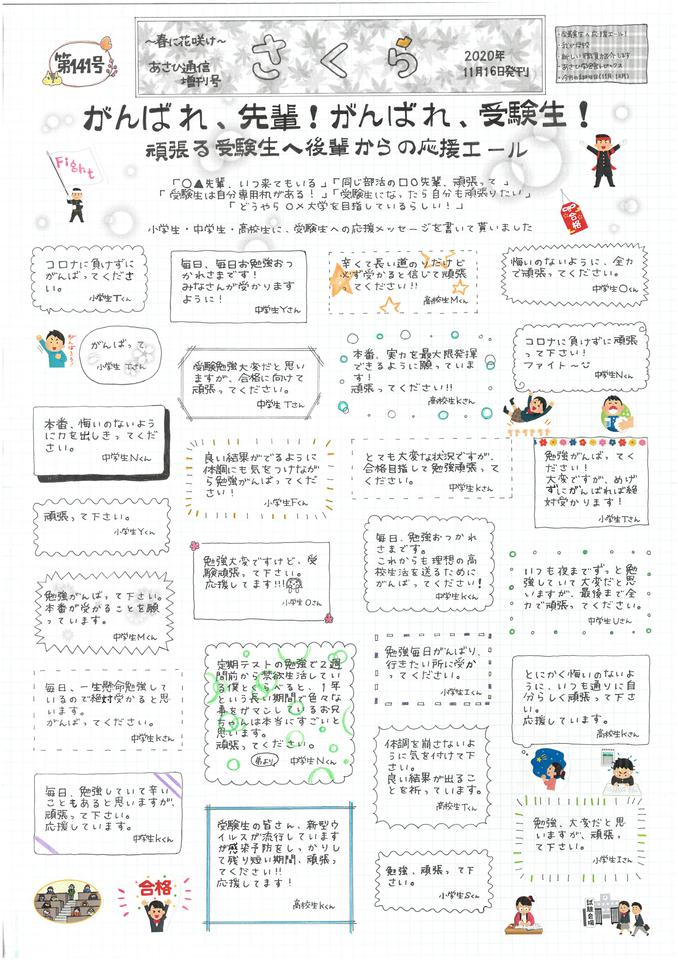 第141号
～春に花咲け～
あさひ通信
増刊号
さくら
2020年
11月16日発刊
・受験生へ応援エール！
がんばれ、先輩！がんばれ、受験生！
頑張る受験生へ後輩からの応援エール
Fight
合格
「〇▲先輩、いつ来てもいる」「同じ部活の口〇先輩、頑張って」
「受験生は自分専用机がある！」「受験生になったら自分も頑張りたい」
「どうやら〇×大学を目指しているらしい！」
小学生・中学生・高校生に、受験生への応援メッセージを書いて貰いました
コロナに負けずに
がんばってくださ
い。
小学生Tくん
毎日、毎日お勉強おつ
かれさまです！
みなさんが受かります
ように！
中学生Yさん
辛くて長い道のりだけど
必ず受かると信じて頑張
ってください!!
高校生Mくん
悔いのないように、全力
で頑張ってください。
中学生Oくん
がんばろう！
がんばって
小学生Tさん
受験勉強大変だと思い
ますが、合格に向けて
頑張ってください。
中学生Tさん
本番、実力を最大限発揮
できるように願っていま
す！
頑張ってください!!
高校生Kさん
コロナに負けずに頑張
って下さい！
ファイト～
中学生Nくん
本番、悔いのないよう
に力を出しきってくだ
さい。
中学生Nくん
良い結果がでるように
体調にも気をつけなが
ら勉強がんばってくだ
さい！
小学生Fくん
とても大変な状況ですが、
合格目指して勉強頑張って
ください。
中学生Kさん
勉強がんばってく
ださい！
大変ですが、めげ
ずにがんばれば絶
対受かります！
小学生Tさん
頑張って下さい。
小学生Yくん
勉強大変ですけど、受
験頑張って下さい。
応援してます!!
小学生Oさん
毎日、勉強おつかれ
さまです。
これからも理想の高
校生活を送るために
がんばってください！
中学生Kくん
いつも夜までずっと勉
強していて大変だと思
いますが、最後まで全
力で頑張ってください。
中学生Uさん
勉強がんばって下さい。
本番が受かることを願
っています。
中学生Mくん
毎日、一生懸命勉強して
いるので絶対受かると思
います。
がんばってください。
中学生Kさん
定期テストの勉強で2週
間前から禁欲生活してい
る僕とくらべると、1年
という長い期間で色々な
事をガマンしているお兄
ちゃんは本当にすごいと
思います。
頑張ってください。
弟より
中学生Nくん
勉強毎日がんばり、
行きたい所に受か
ってください。
小学生Iくん
とにかく悔いのないよ
うに、いつも通りに自
分らしく頑張って下さ
い。
応援しています。
高校生Kさん
体調を崩さないよ
うに気を付けて下
さい。
良い結果が出るこ
とを祈っています。
高校生Tくん
毎日、勉強していて辛い
こともあると思いますが、
頑張って下さい。
応援しています。
中学生Kくん
受験生の皆さん、新型ウ
イルスが流行しています
が感染予防をしっかりし
て残り短い期間、頑張っ
てください!!
応援してます！
高校生Kくん
勉強、頑張って下
さい。
小学生Sくん
勉強、大変だと思
いますが、頑張っ
て下さい。
小学生Iさん
合格
試験会場